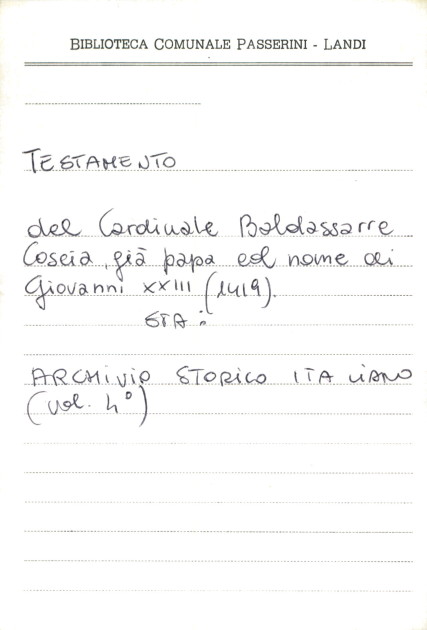 BIBLIOTECA COMUNALE PASSERINI - LANDI
TESTAMENTO
del Cardinale Baldassarre
Coscia, già papa col nome di
Giovanni XXIII (1419).
STA:
ARCHIVIO STORICO ITALIANO
(vol. 4°)